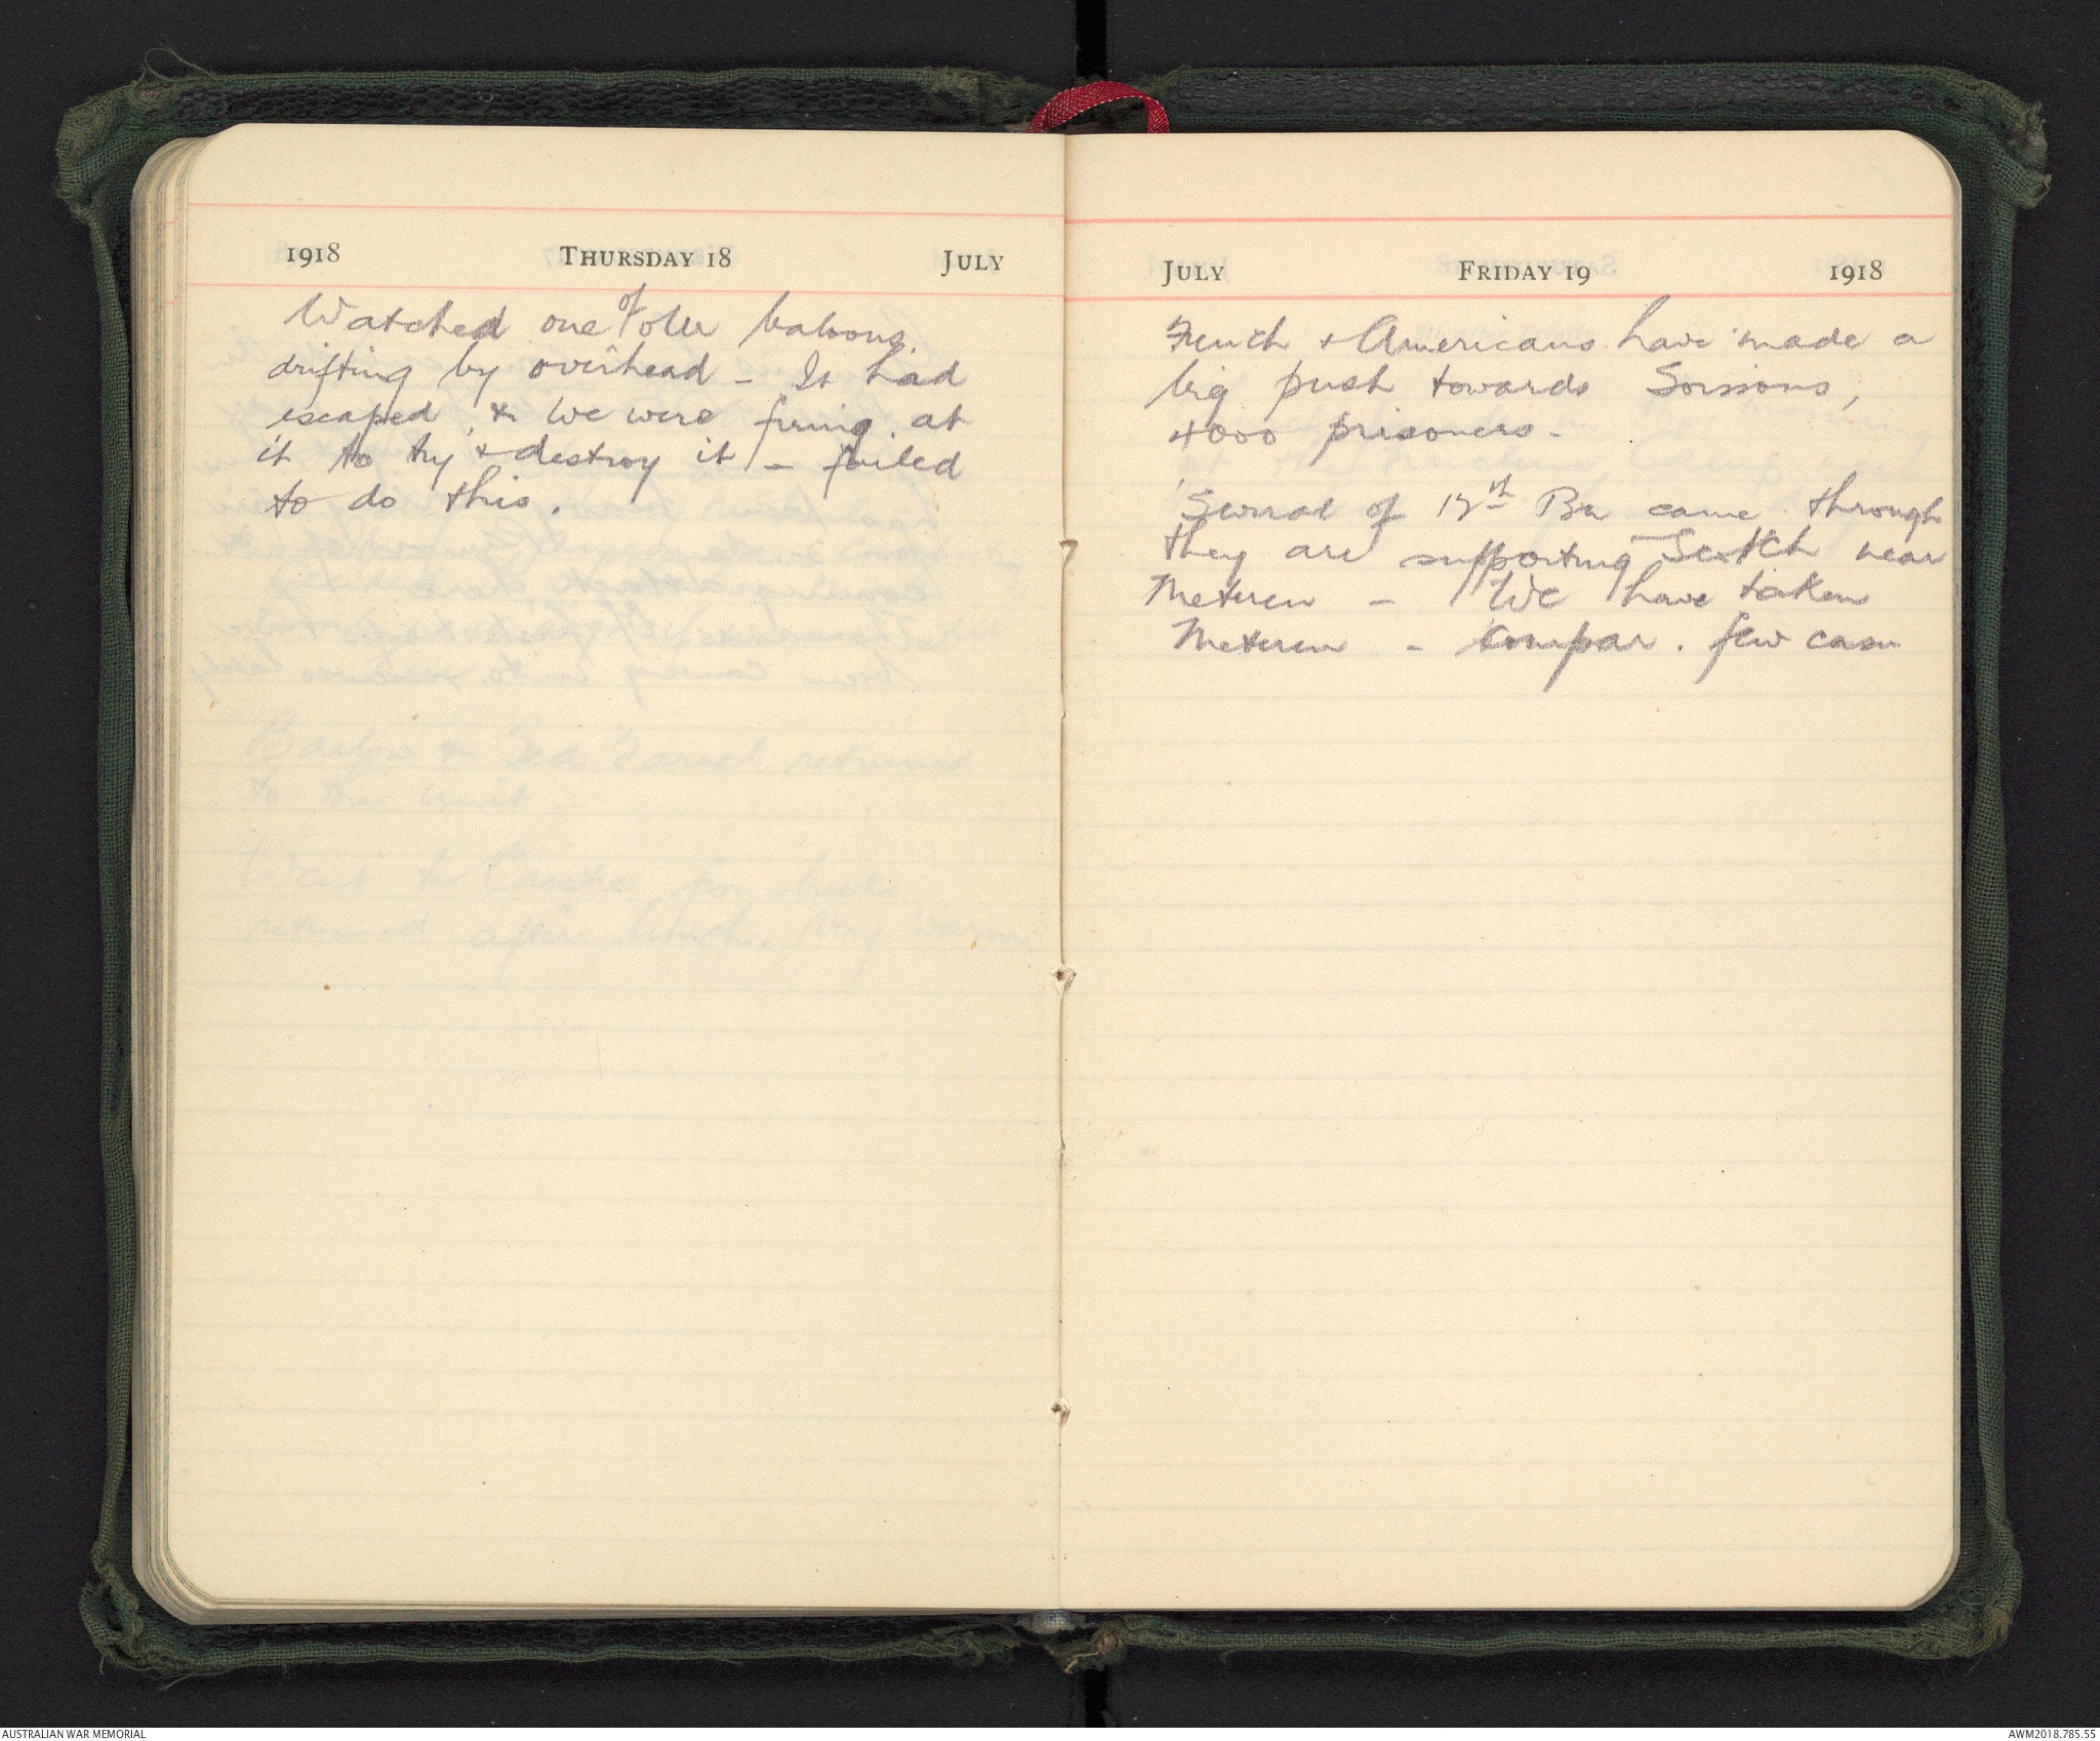 1918 THURSDAY 18 JULY
Watched one of our baloons
drifting by overhead - It had
escaped, & we were firing at
it to try & destroy it - failed
to do this.
JULY FRIDAY 19 1918
French & Americans have made a
big push towards Soissons,
4000 prisoners -
Several of Bn came through
they are supporting Scotch near
Meteren - We have taken
Meteren - compar. few cas
AUSTRALIAN WAR MEMORIAL
AWM2018.785.55